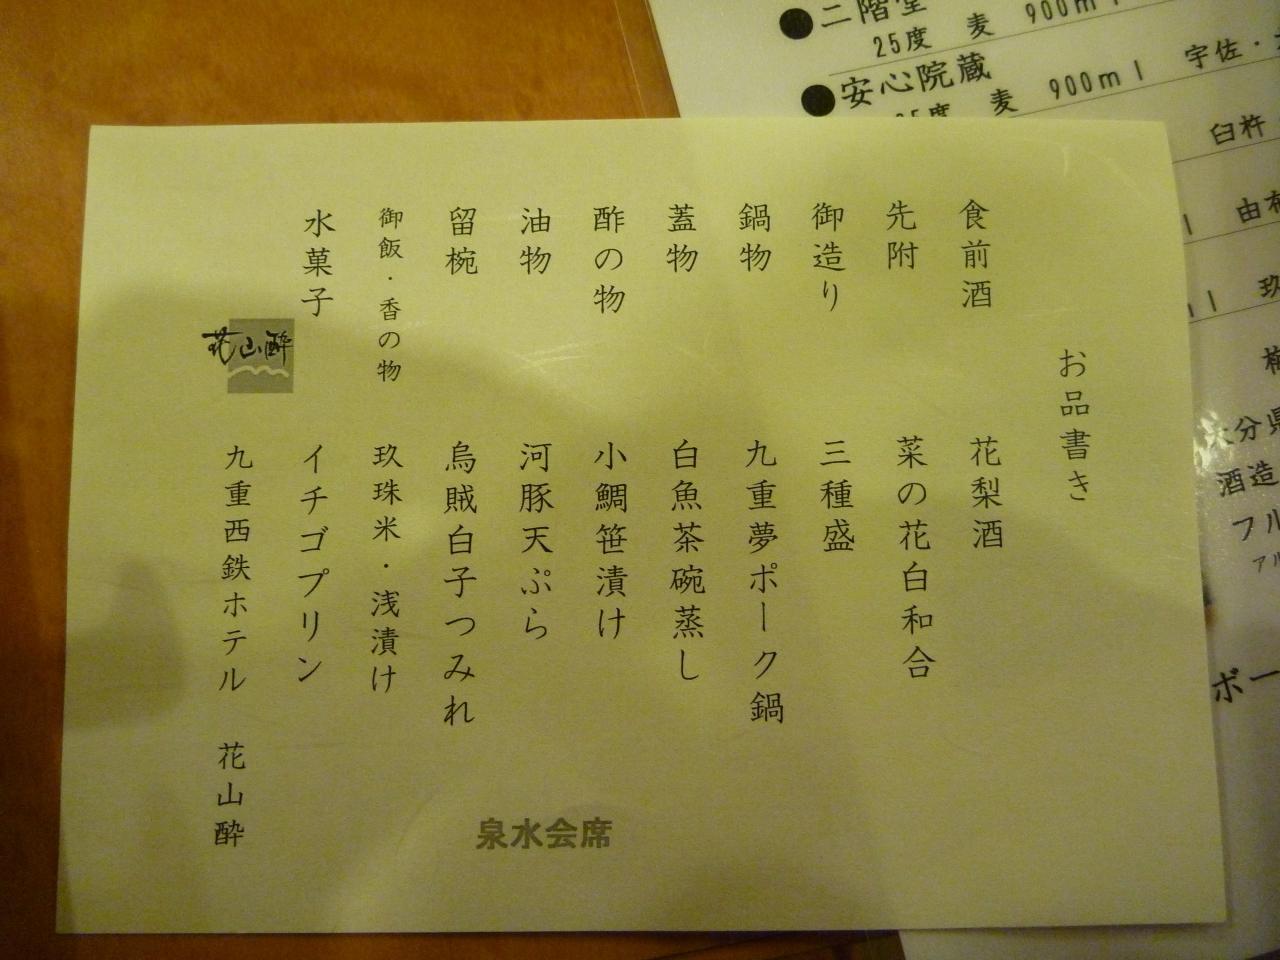 お品書き
食前酒 花梨酒
先附 菜の花白和合
御造り 三種盛
鍋物 九重夢ポーク鍋
蓋物 白魚茶碗蒸し
酢の物 小鯛笹漬け
油物 河豚天ぷら
留椀 烏賊白子つみれ
御飯・香の物 玖珠米・浅漬け
水菓子 イチゴプリン
花山酔
九重西鉄ホテル 花山酔
泉水会席
●二階堂
25度 麦 900ml
●安心院蔵
25度 麦 900ml 宇佐・
臼杵
由布
玖
大分県
酒造
フル
アル
ボー